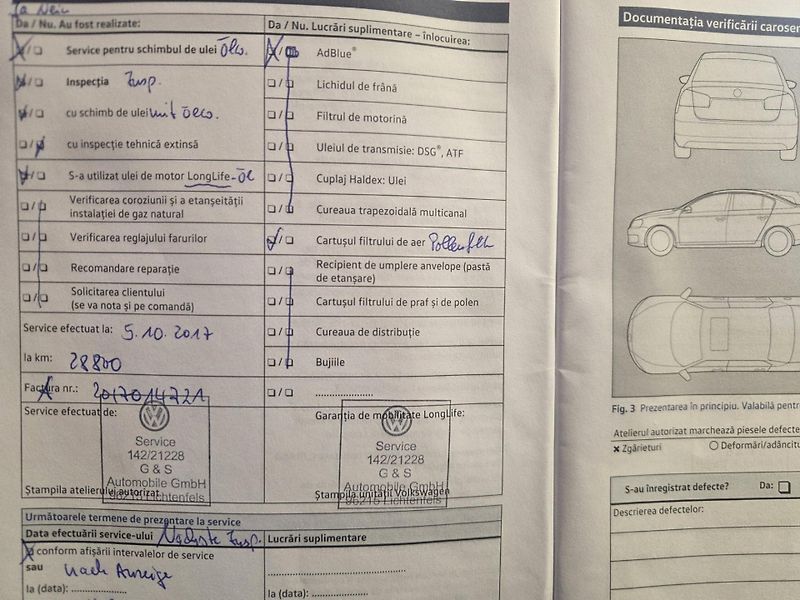 Ja Nein
Da / Nu. Au fost realizate:
Service pentru schimbul de ulei Ölw.
Inspecția Insp.
cu schimb de ulei mit Ölw.
cu inspecție tehnică extinsă
S-a utilizat ulei de motor LongLife-Öl
Verificarea coroziunii și a etanșeității
instalației de gaz natural
Verificarea reglajului farurilor
Recomandare reparație
Solicitarea clientului
(se va nota și pe comandă)
Service efectuat la: 5.10.2017
la km: 28800
Factura nr.: 2017014721
Service efectuat de:
Service
142/21228
G & S
Automobile GmbH
96215 Lichtenfels
Ștampila atelierului autorizat
Da / Nu. Lucrări suplimentare – înlocuirea:
AdBlue®
Lichidul de frână
Filtrul de motorină
Uleiul de transmisie: DSG®, ATF
Cuplaj Haldex: Ulei
Cureaua trapezoidală multicanal
Cartușul filtrului de aer Pollenfilt
Recipient de umplere anvelope (pastă
de etanșare)
Cartușul filtrului de praf și de polen
Cureaua de distribuție
Bujiile
....................
Garanția de mobilitate LongLife:
Service
142/21228
G & S
Automobile GmbH
96215 Lichtenfels
Ștampila unității Volkswagen
Următoarele termene de prezentare la service
Data efectuării service-ului Nächste Insp.
conform afișării intervalelor de service
sau nach Anzeige
la (data): ....................
Lucrări suplimentare
la (data): ....................
Documentația verificării caroser
Fig. 3 Prezentarea în principiu. Valabilă pentr
Atelierul autorizat marchează piesele defecte
x Zgârieturi O Deformări/adâncitu
S-au înregistrat defecte? Da:
Descrierea defectelor: